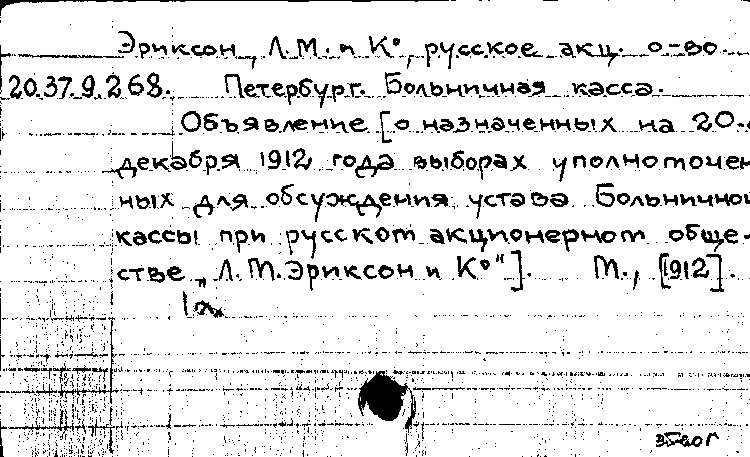 Эриксон, Л.М. и К°, русское акц. о-во.
20.37.9.268. Петербург. Больничная касса.
Объявление [о назначенных на 20-
декабря 1912 года выборах уполномочен
ных для обсуждения устава Больничной
кассы при русском акционерном обще-
стве „Л.М. Эриксон и К°"]. М., [1912].